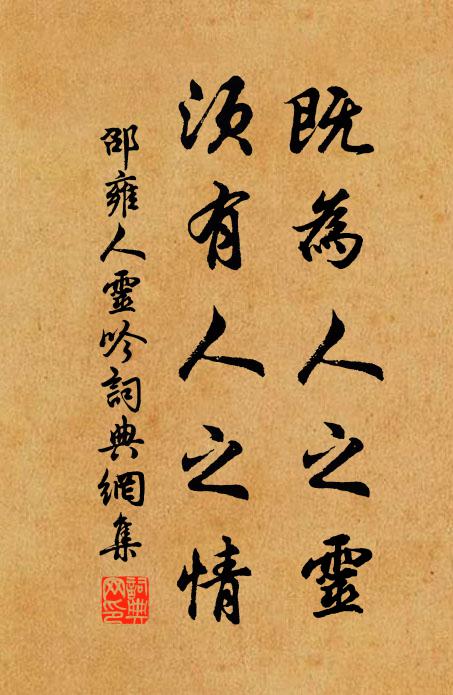 既為人之靈
須有人之情
邵雍人靈吟詞典網集
詞典網印